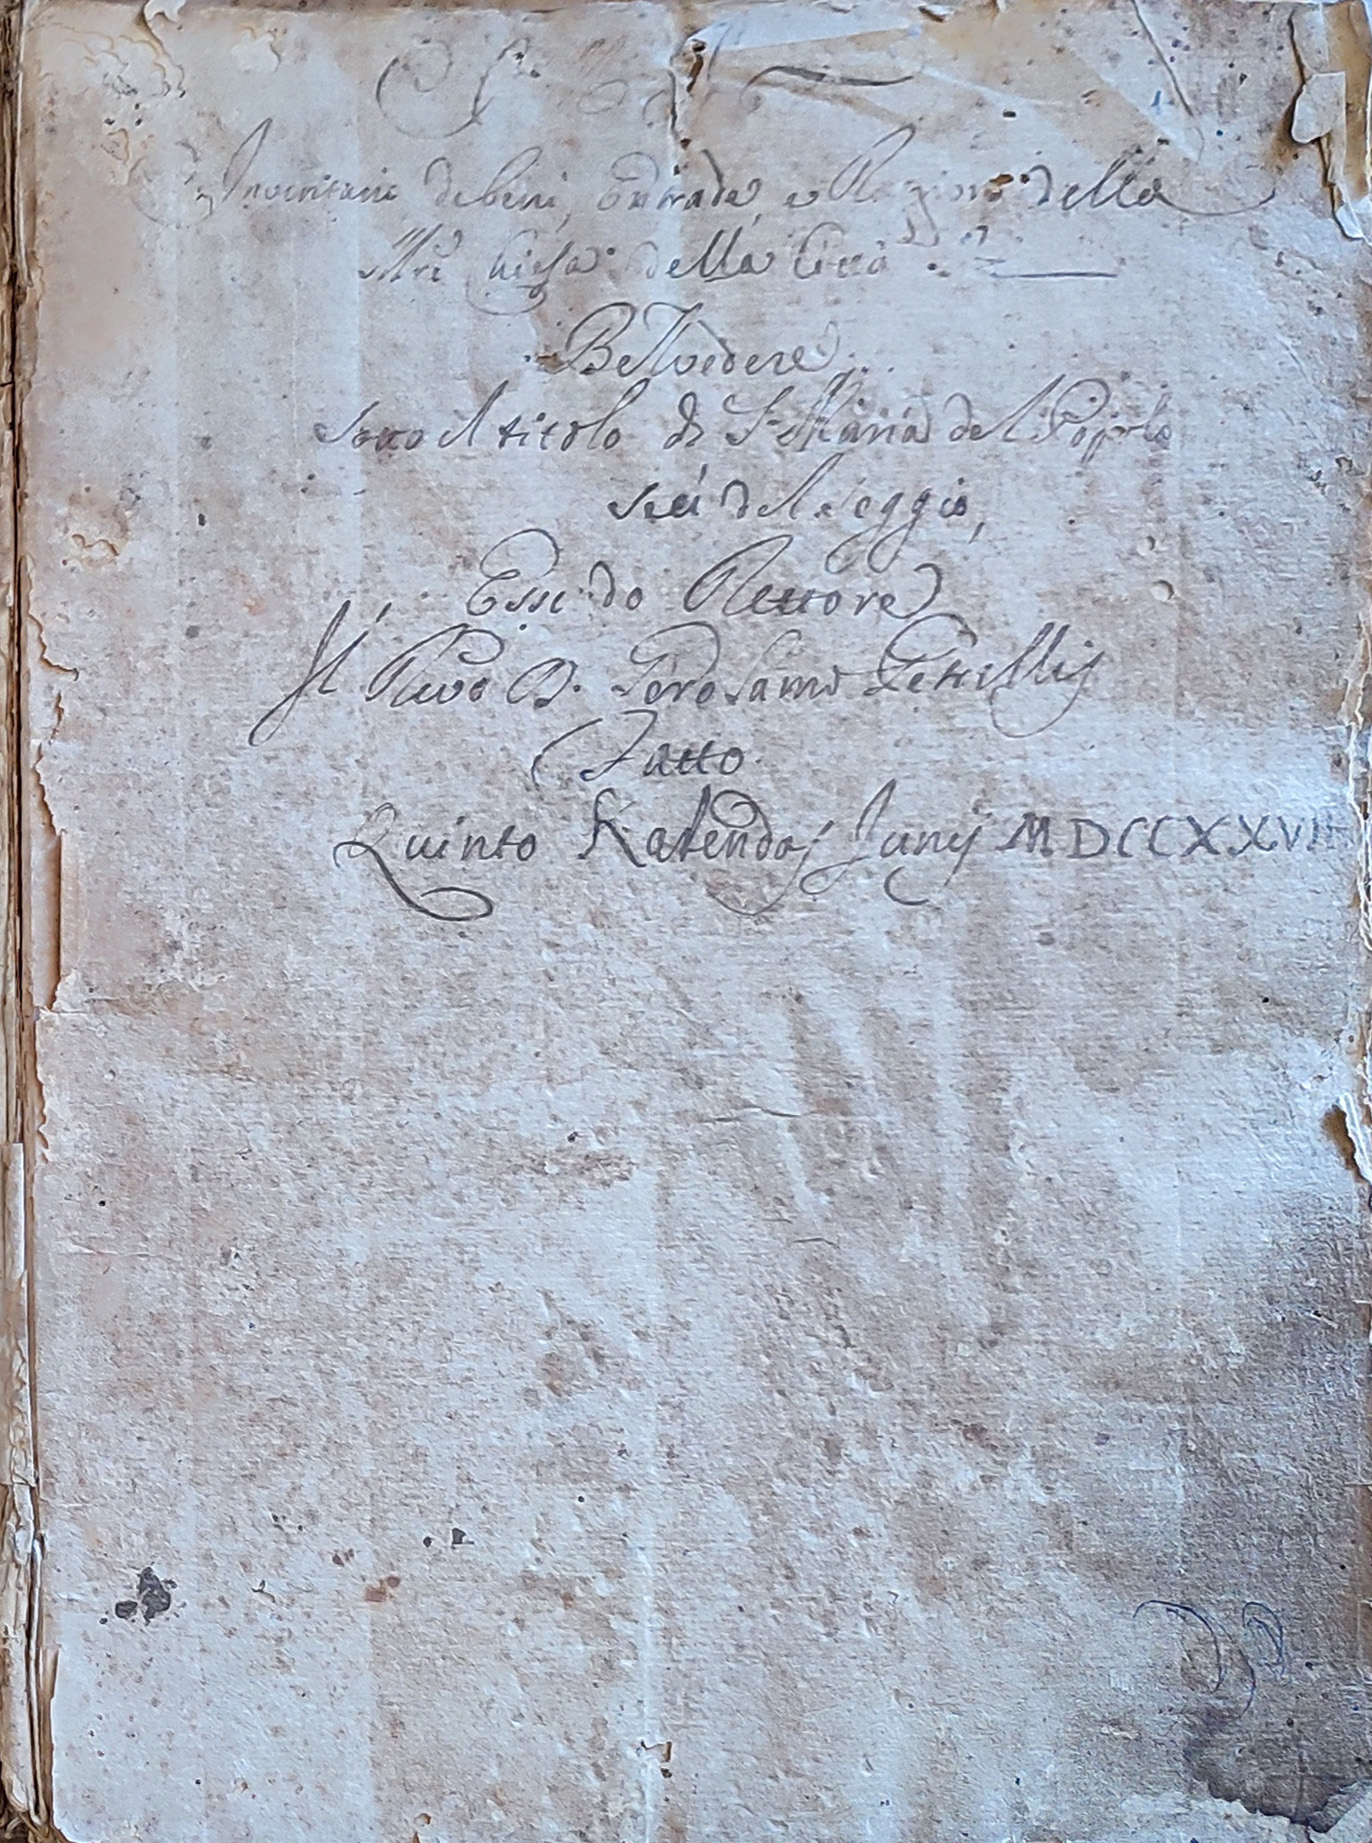 Inventario de beni, Entrade, e Ragioni della
Mrĕ Chiesa della Città di
Belvedere
Sotto il titolo di S. Maria del Popolo
seù del Seggio,
Essendo Rettore
Il Revdo D. Gerosamo
Fatto
Quinto Kalendas Junij MDCCXXVII